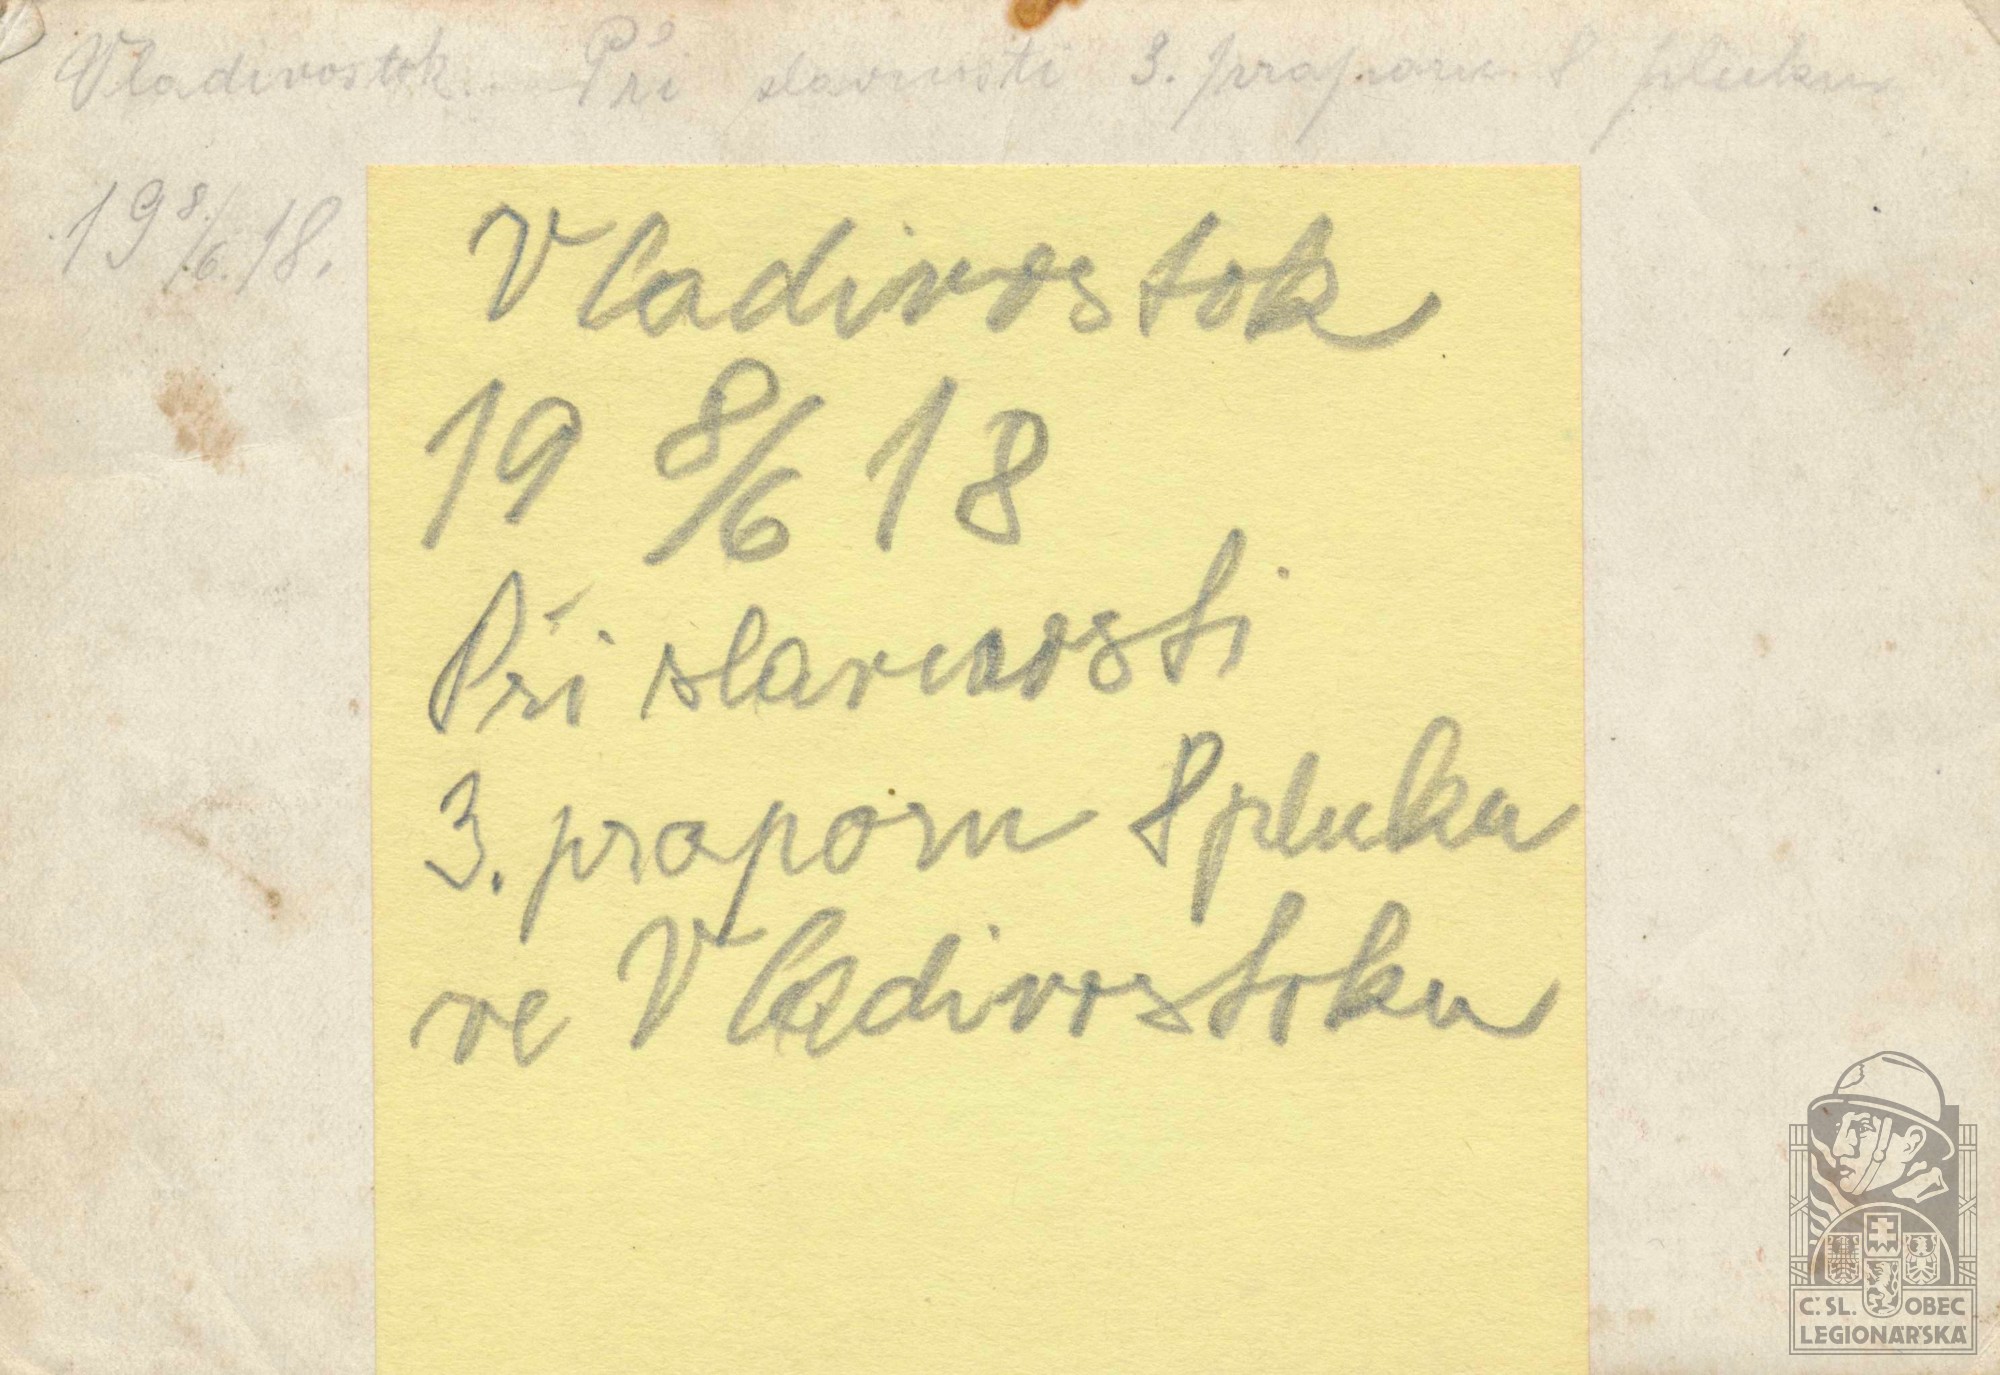 Vladivostok. Při slavnosti 3. praporu 8 pluku
19 8/6. 18.
Vladivostok
19 8/6 18
Při slavnosti
3. praporu 8 pluku
ve Vladivostoku
Č. SL. OBEC
LEGIONÁŘSKÁ